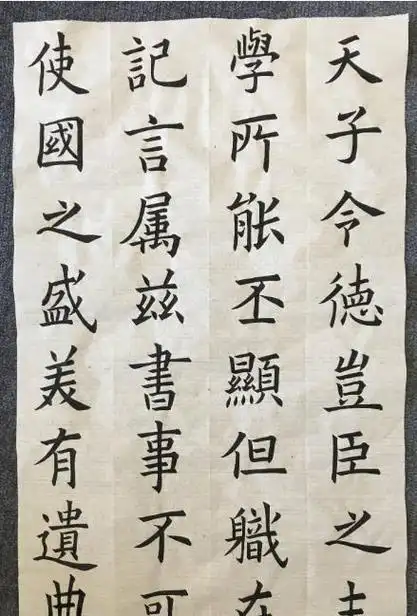 天子令德豈臣之
學所能丕顯但職在
記言属兹書事不可
使國之盛美有遺典